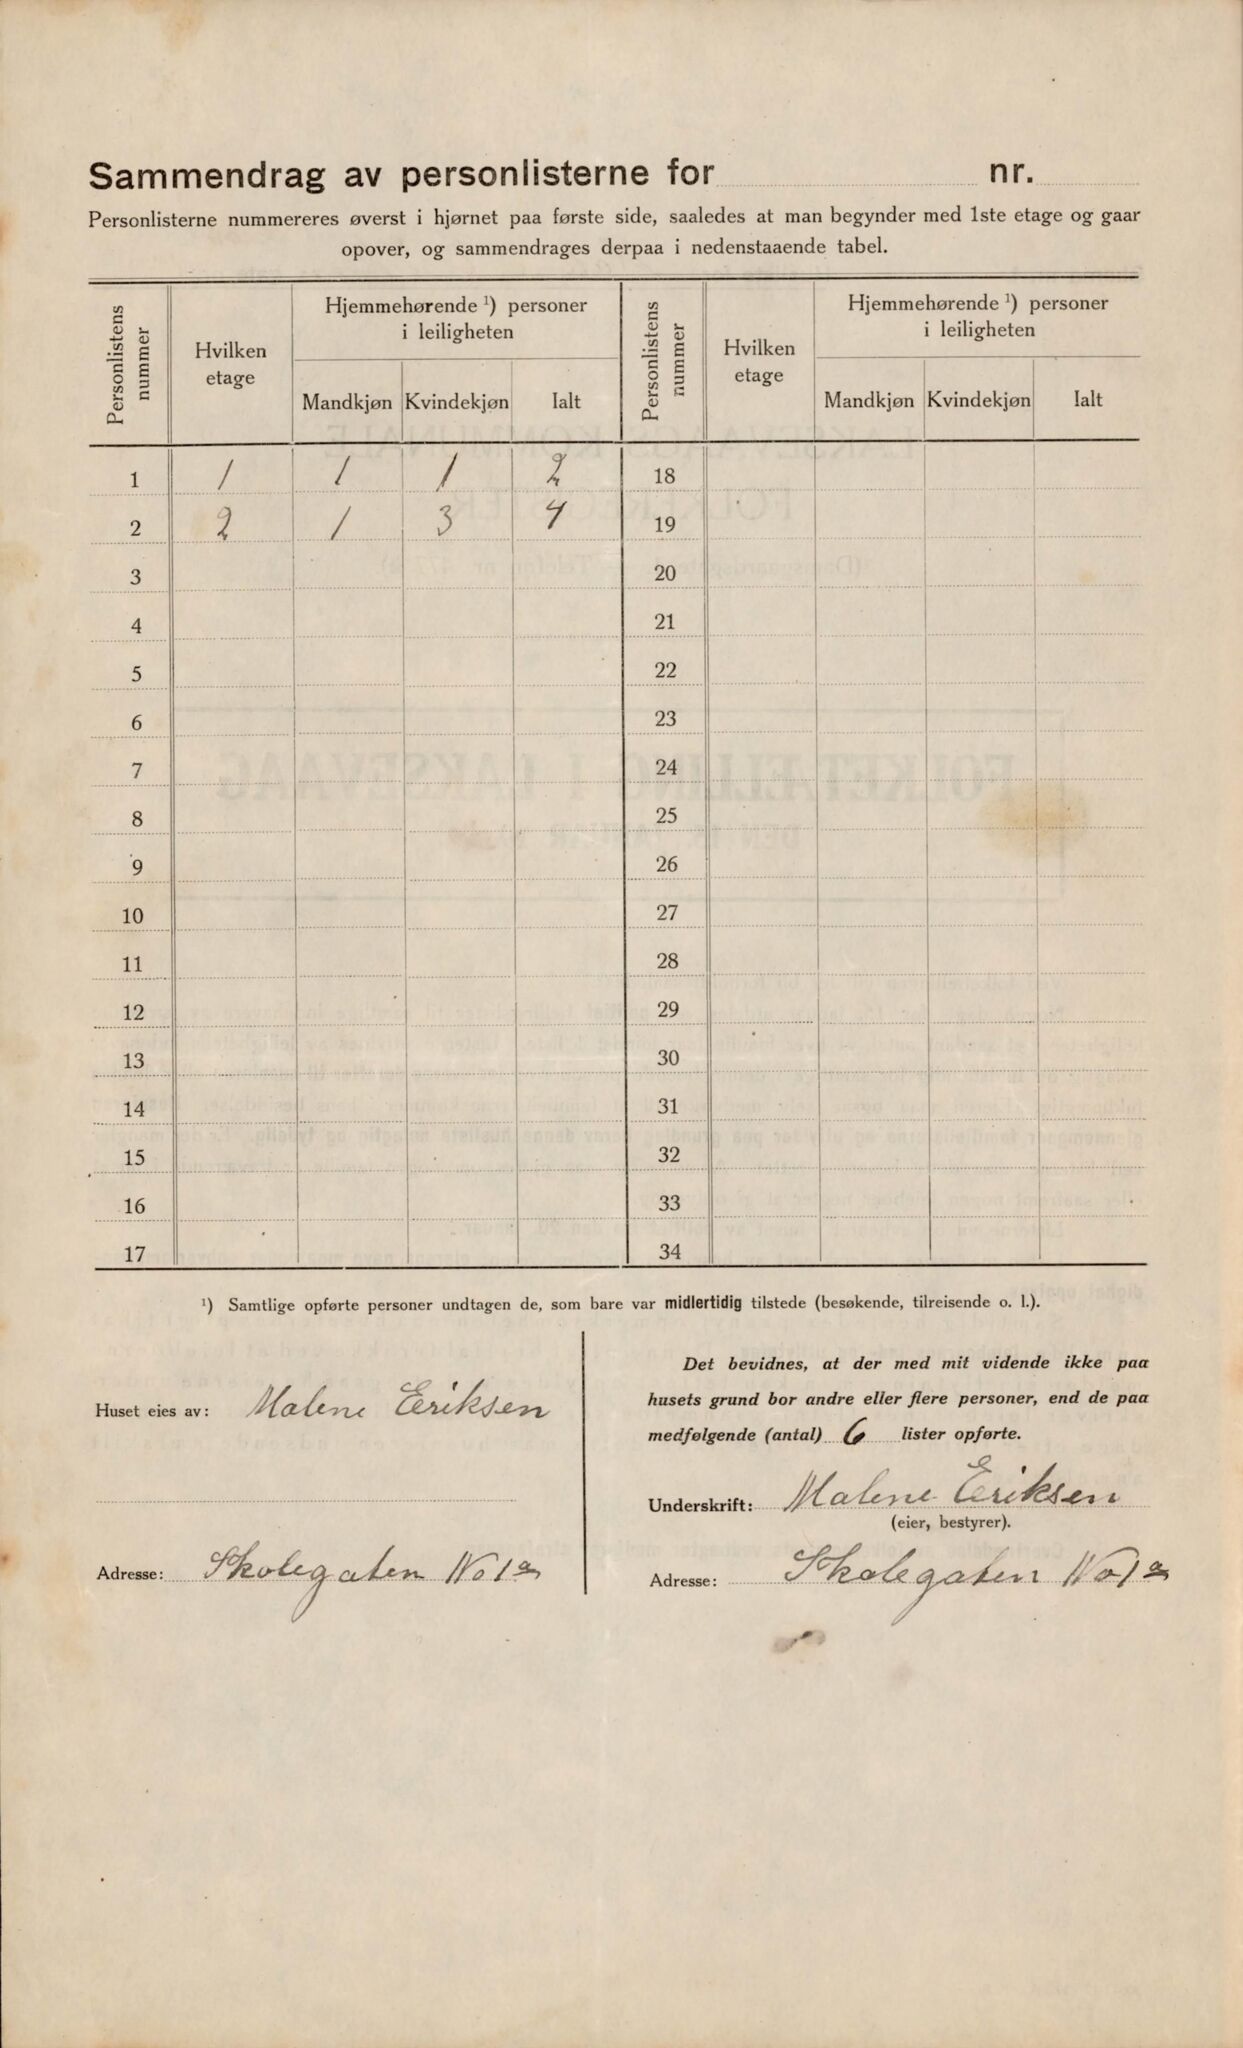 Sammendrag av personlisterne for nr.
Personlisterne nummereres øverst i hjørnet paa første side, saaledes at man begynder med 1ste etage og gaar
opover, og sammendrages derpaa i nedenstaaende tabel.
Personlistens nummer
Hvilken etage
Hjemmehørende ¹) personer
i leiligheten
Mandkjøn Kvindekjøn Ialt
Personlistens nummer
Hvilken etage
Hjemmehørende ¹) personer
i leiligheten
Mandkjøn Kvindekjøn Ialt
1 1 1 1 2 18
2 2 1 3 4 19
3 20
4 21
5 22
6 23
7 24
8 25
9 26
10 27
11 28
12 29
13 30
14 31
15 32
16 33
17 34
¹) Samtlige opførte personer undtagen de, som bare var midlertidig tilstede (besøkende, tilreisende o. l.).
Huset eies av: Malene Eriksen
Adresse: Skolegaten No 1a
Det bevidnes, at der med mit vidende ikke paa
husets grund bor andre eller flere personer, end de paa
medfølgende (antal) 6 lister opførte.
Underskrift: Malene Eriksen
(eier, bestyrer).
Adresse: Skolegaten No 1a